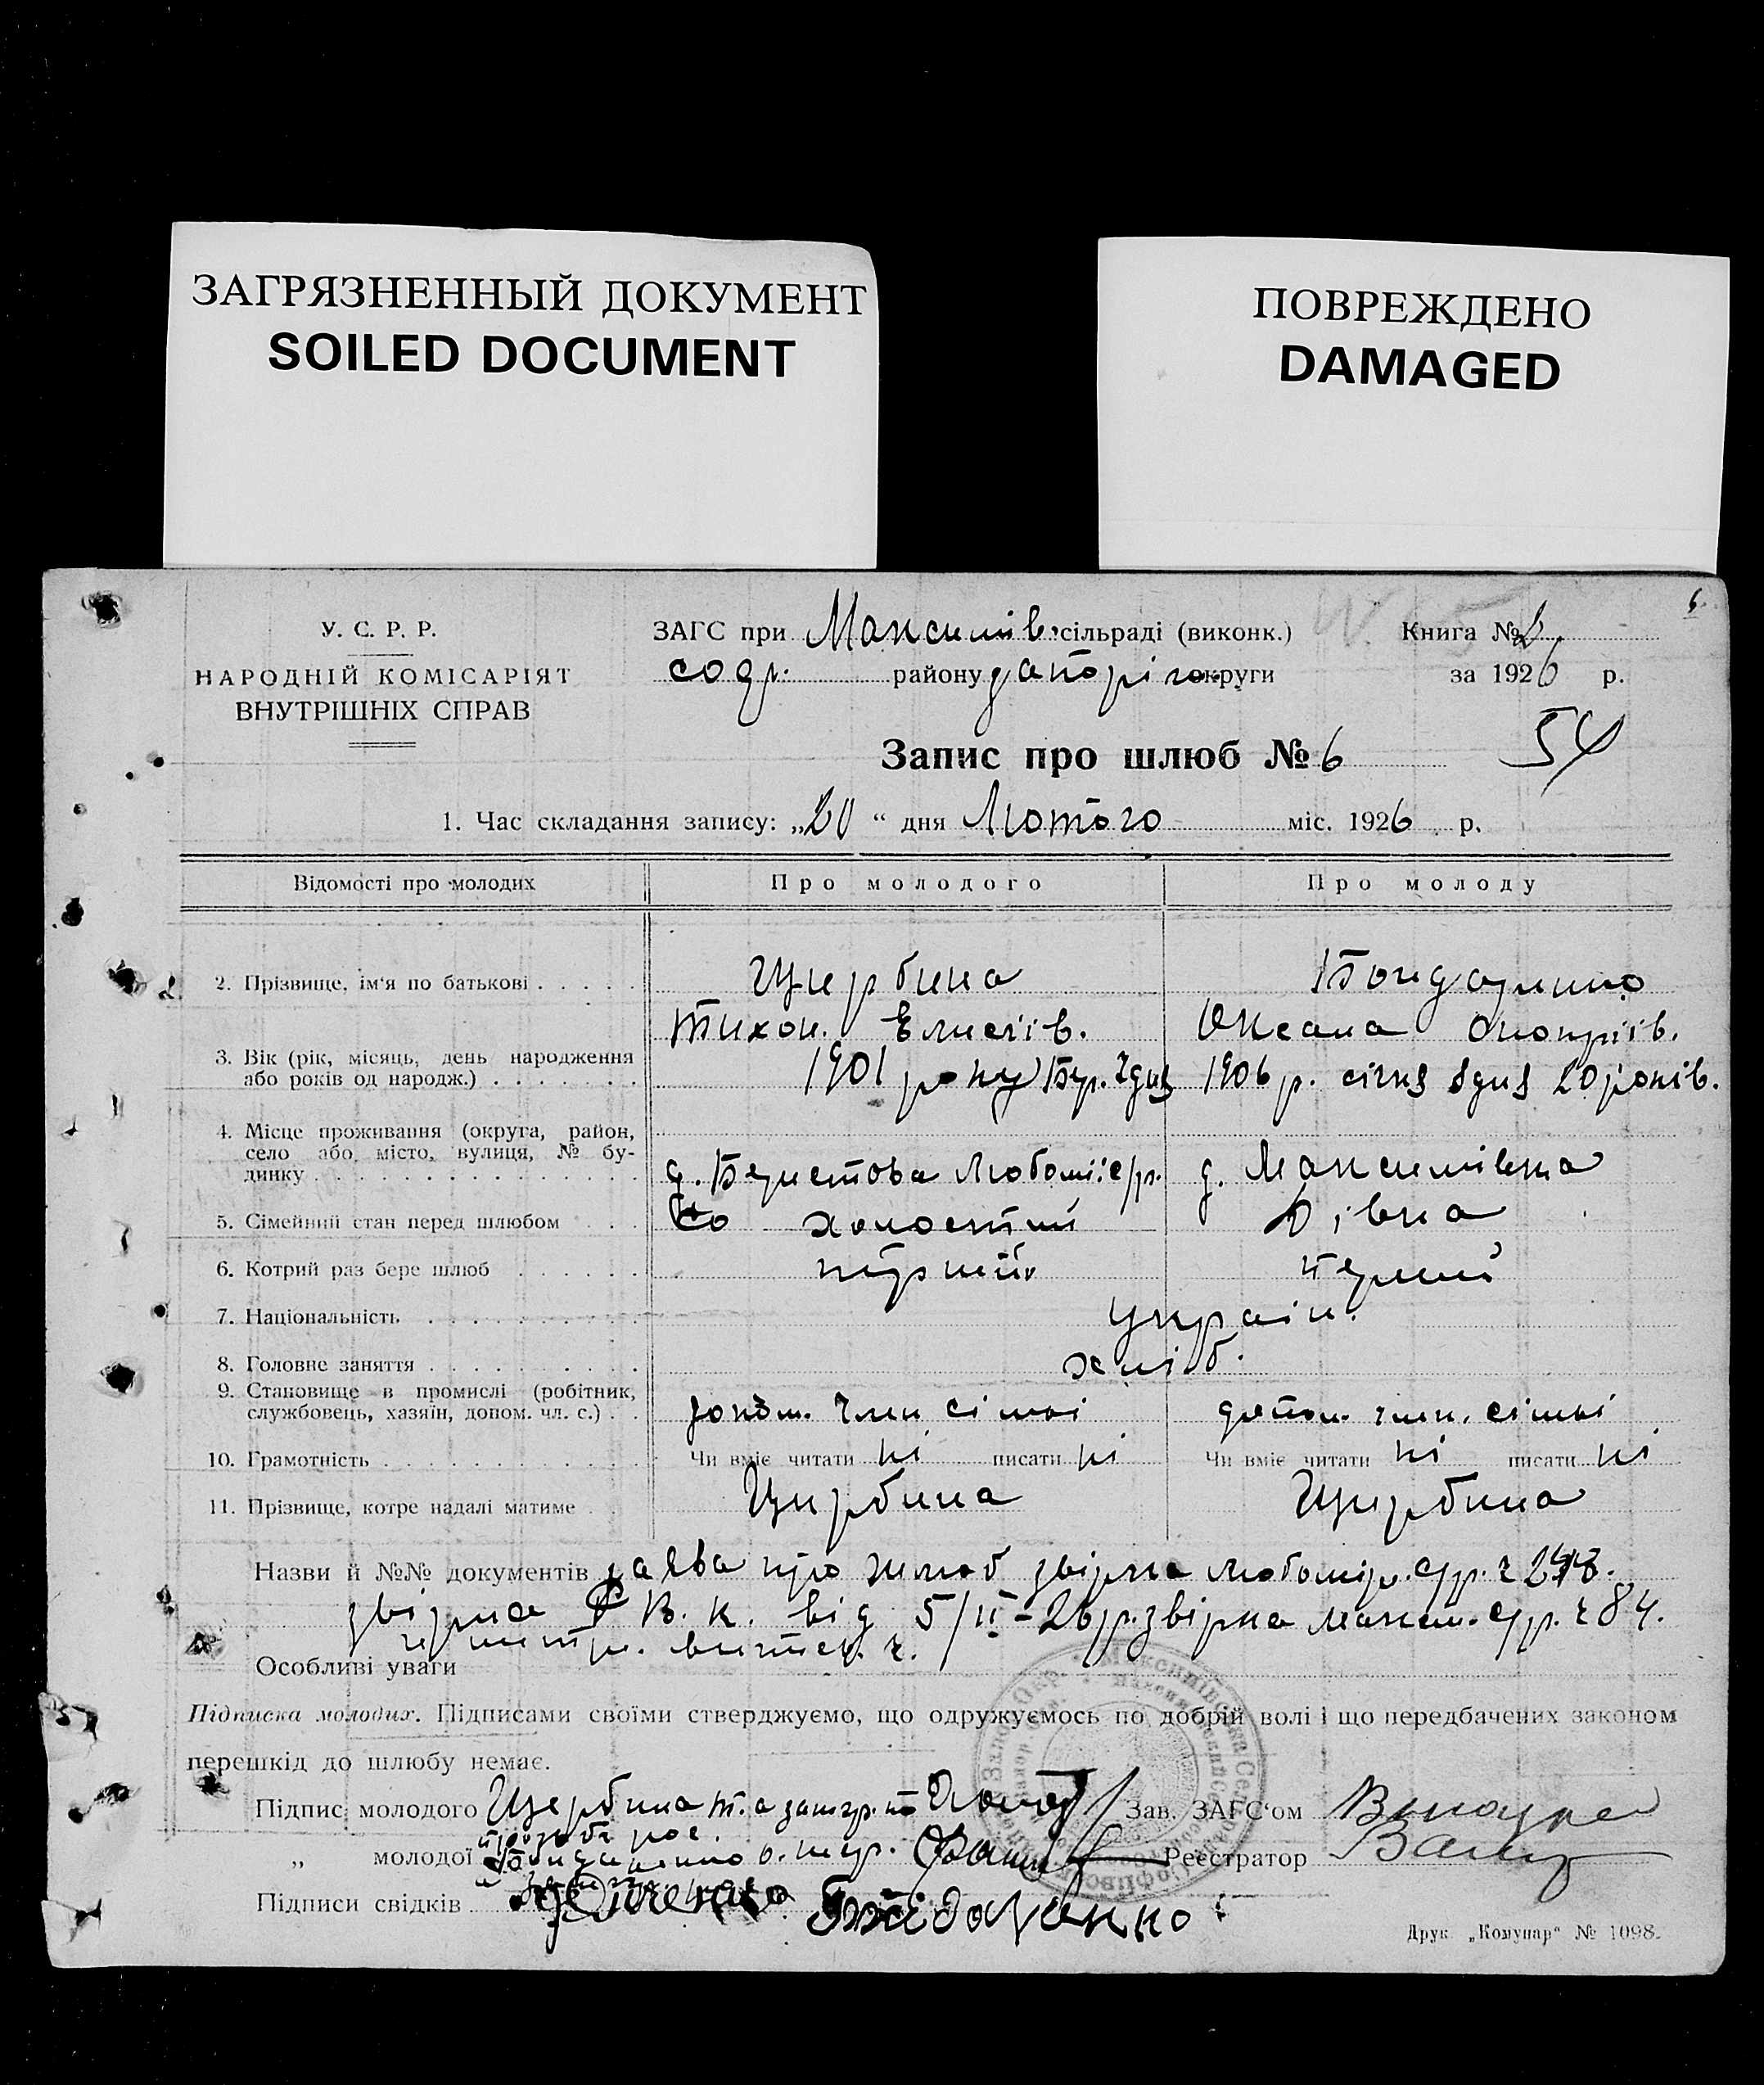 ЗАГРЯЗНЕННЫЙ ДОКУМЕНТ
SOILED DOCUMENT
ПОВРЕЖДЕНО
DAMAGED
6
У. С. Р. Р.
НАРОДНІЙ КОМІСАРІЯТ
ВНУТРІШНІХ СПРАВ
ЗАГС при Максимів. сільраді (виконк.)
района Запоріз. округи
Книга №
за 1926 р.
Запис про шлюб № 6
54
1. Час складання запису: „20“ дня Лютого міс. 1926 р.
Відомості про молодих Про молодого Про молоду
2. Прізвище, ім'я по батькові Щербина Бондаренко
Тихон. Елисеів. Оксана Оноприів.
3. Вік (рік, місяць, день народження
або років од народж.) 1901 року 1906 р. січня 8 дня 20 років.
4. Місце проживання (округа, район,
село або місто, вулиця, № бу-
динку д. Берестова Любоми. с/р. д. Максимівка
5. Сімейний стан перед шлюбом холостий Дівка
6. Котрий раз бере шлюб перший перший
7. Національність Украін.
8. Головне заняття хліб.
9. Становище в промислі (робітник,
службовець, хазяїн, допом. чл. с.) допом. член сімьі допом. член. сімьі
10. Грамотність Чи вміє читати ні писати ні Чи вміє читати ні писати ні
11. Прізвище, котре надалі матиме Щербина Щербина
Назви й №№ документів заява про шлюб звірка Любомір. с/р.
звірка Р.В.К. від 5/ІІ-26 р. звірка Максим. с/р. ч 84.
Особливі уваги
Підписка молодих. Підписами своїми стверджуємо, що одружуємось по добрій волі і що передбачених законом
перешкід до шлюбу немає.
Підпис молодого Щербина Т. а за
Зав. ЗАГС'ом
„ молодої Бондаренко
Реєстратор
Підписи свідків
Друк. „Комунар“ № 1098.